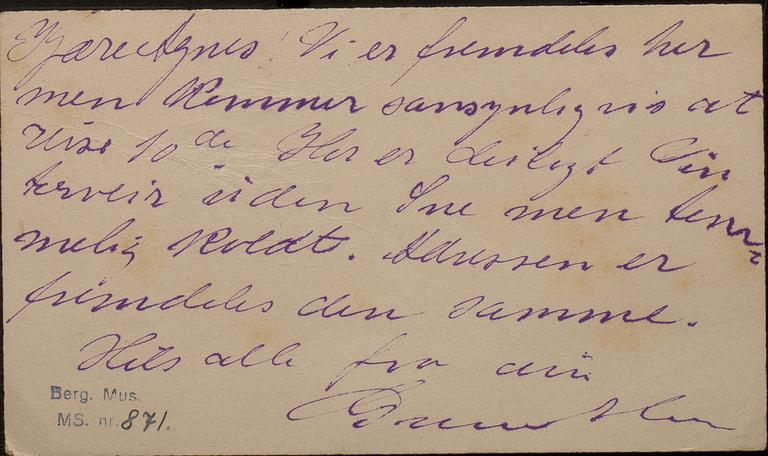 Kjære Agnes! Vi er fremdeles her
men kommer sansynligvis at
reise 10 de Her er deiligt Vin
terveir uden Sne men tem
melig koldt. Adressen er
fremdeles den samme.
Hils alle fra din
Berg. Mus.
MS. nr. 871.